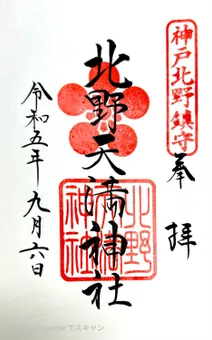 神戸北野鎮守
奉拝
北野天満神社
北野天満神社
令和五年九月六日
でスキャン